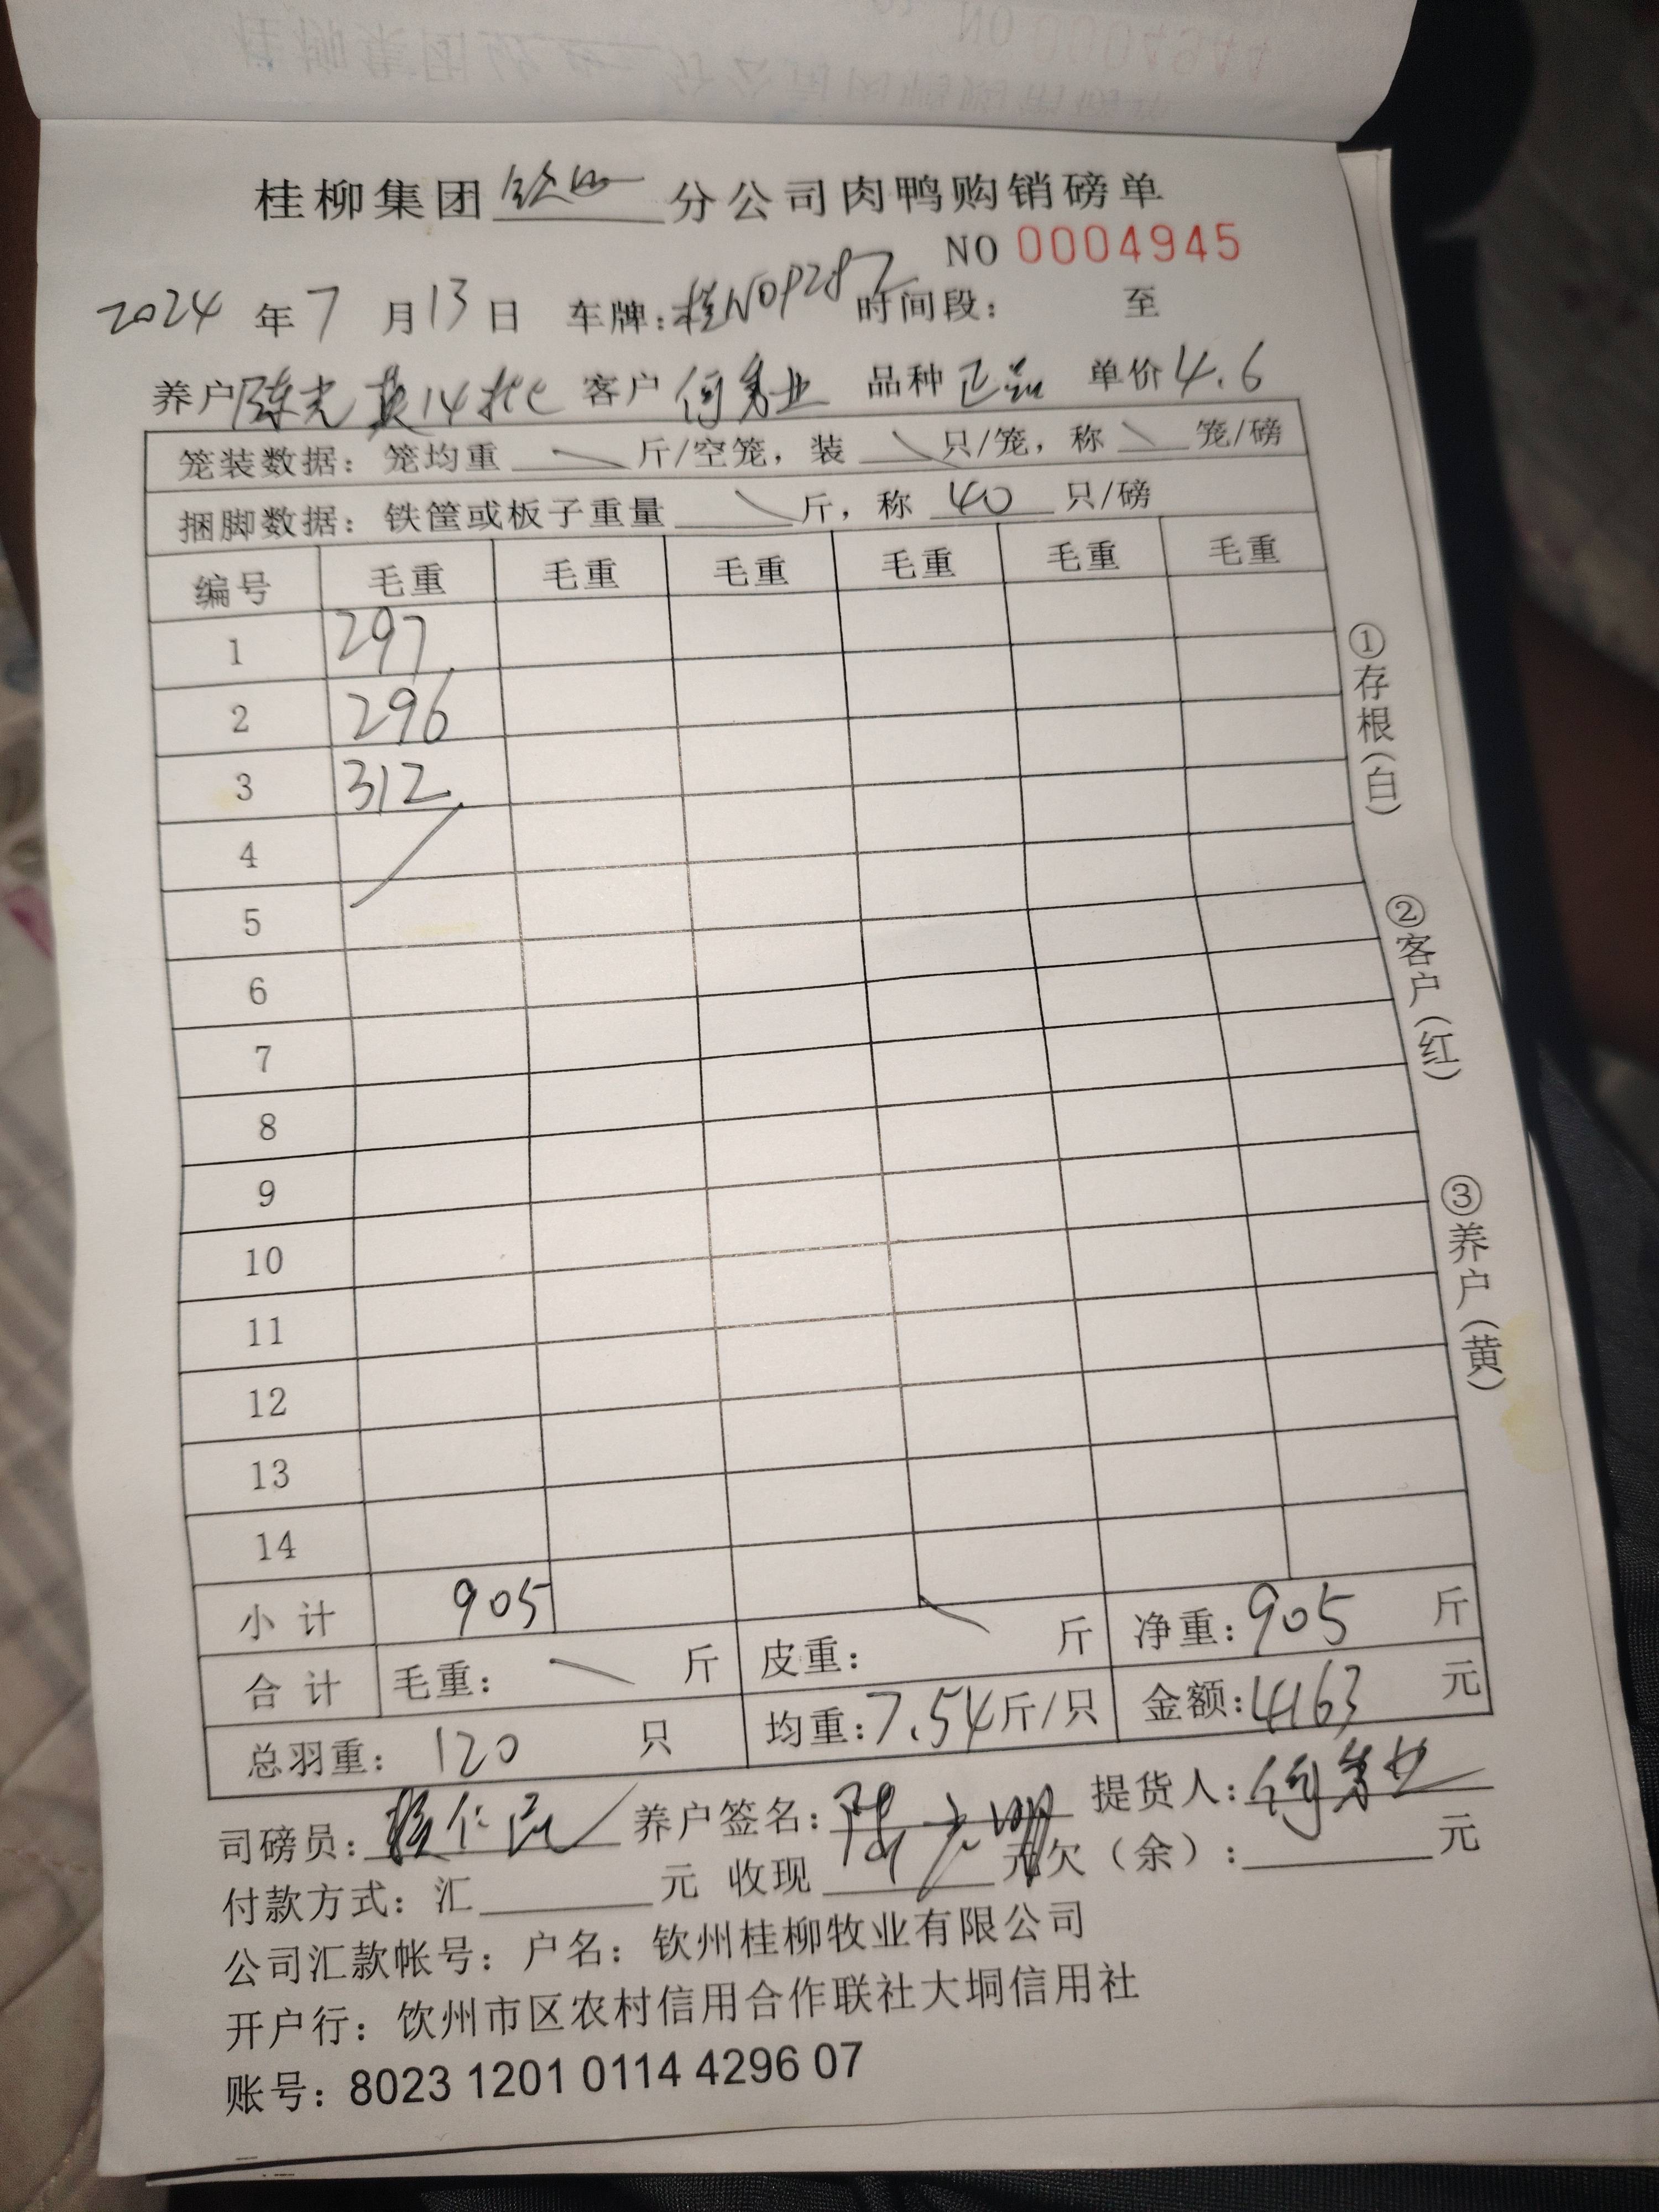 桂柳集团 钦州 分公司肉鸭购销磅单
NO 0004945
2024 年 7 月 13 日 车牌: 桂N 时间段: 至
养户 陈光英14批 客户 何秀业 品种 正品 单价 4.6
笼装数据: 笼均重 斤/空笼, 装 只/笼, 称 笼/磅
捆脚数据: 铁筐或板子重量 斤, 称 40 只/磅
编号 毛重 毛重 毛重 毛重 毛重 毛重
1 297
2 296
3 312
4
5
6
7
8
9
10
11
12
13
14
小计 905
合计 毛重: 斤 皮重: 斤 净重: 905 斤
总羽重: 120 只 均重: 7.54 斤/只 金额: 4163 元
司磅员: 养户签名: 陈光明 提货人: 何秀业
付款方式: 汇 元 收现 元 欠(余): 元
公司汇款帐号: 户名: 钦州桂柳牧业有限公司
开户行: 饮州市区农村信用合作联社大垌信用社
账号: 8023 1201 0114 4296 07
①存根(白)
②客户(红)
③养户(黄)